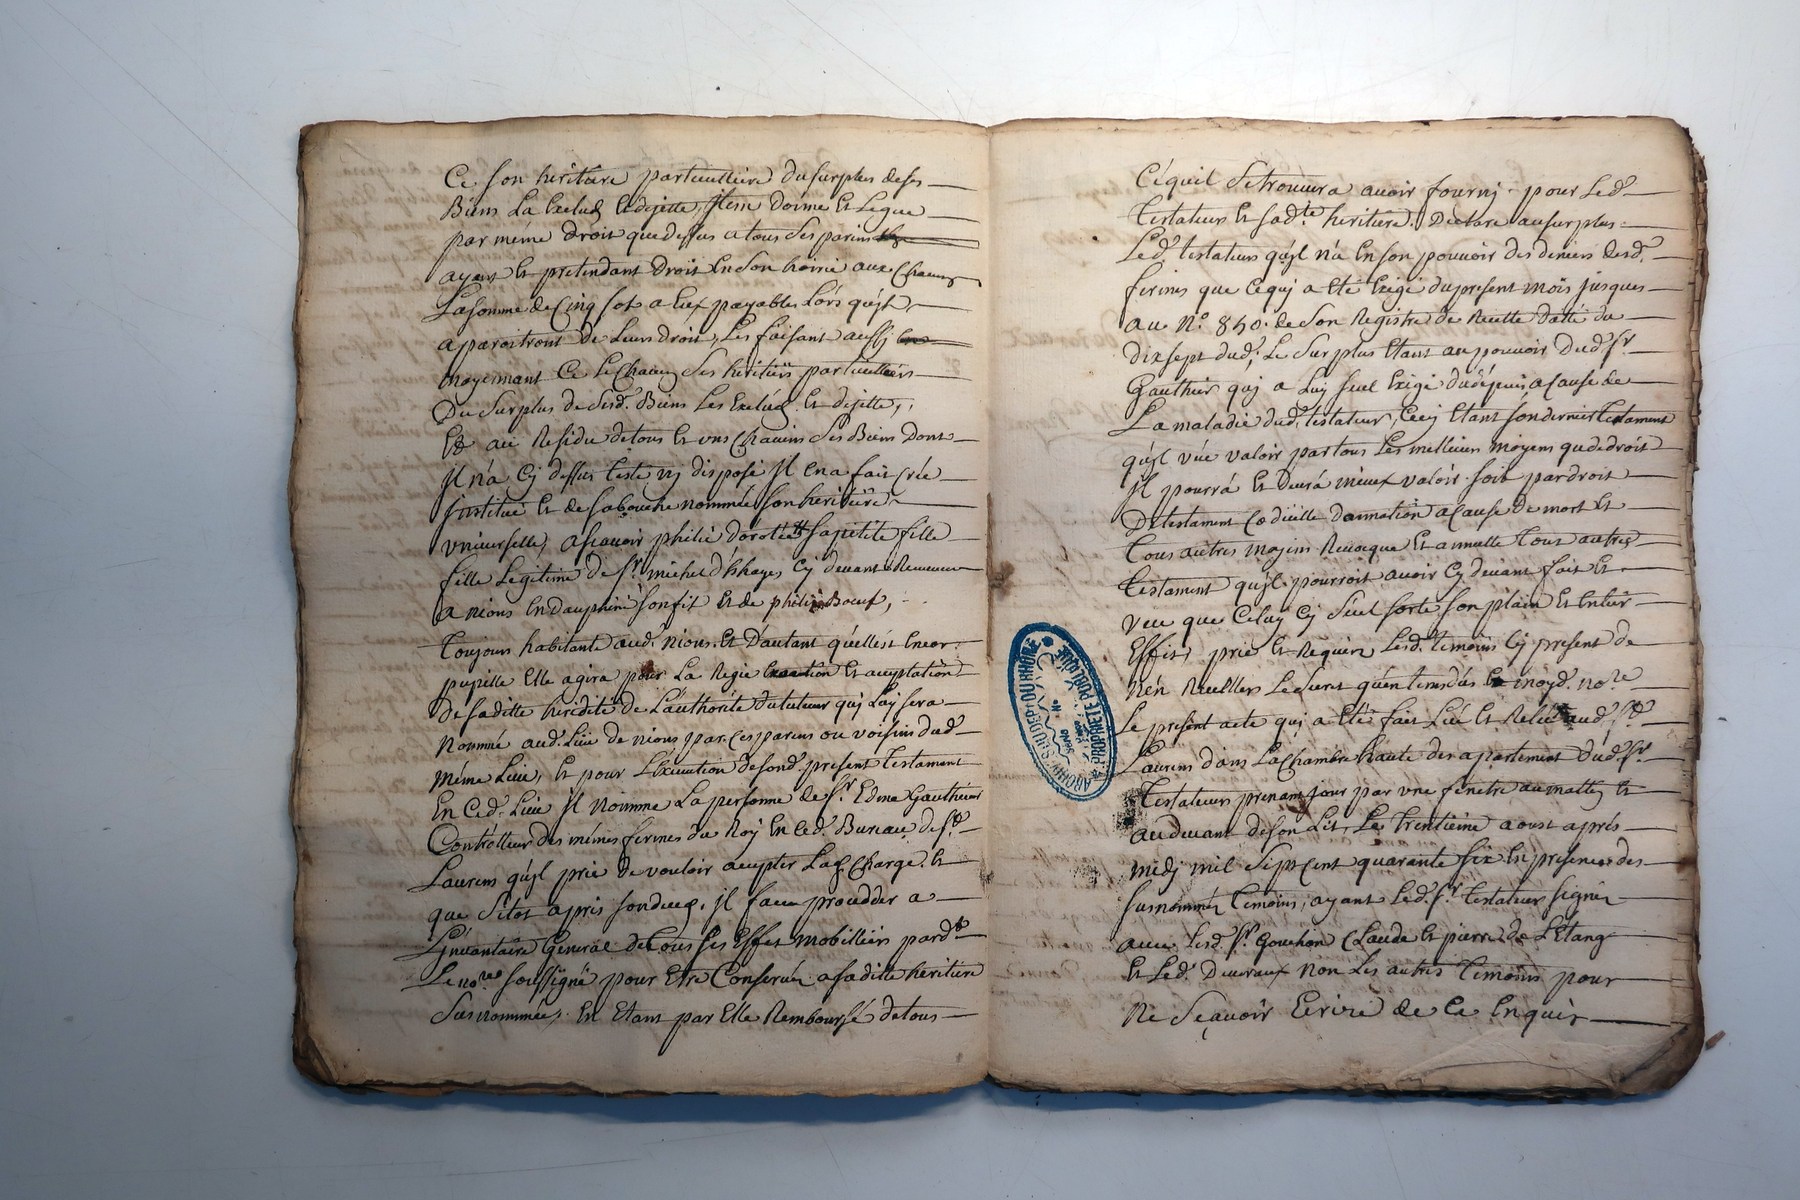 Ce son heritiere particulliere du surplus de ses
Biens La Exclud Et dejette, Item Donne Et Legue
par méme droit que dessus a tous ses parens
ayans Et pretendant Droit En Son hoirie aux Chacun
La somme de Cinq sols a Eux payables Lors qu'jls
aparoitront de Leurs droit, Les faisant aussy
moyennant Ce Et Chacun Ses heritiers particulliers
Du Surplus de Sesd. Biens Les Exclud Et dejette,
Et au Residu de tous Et uns Chacuns Ses Biens Dont
Jl n'a Cy dessus testé ny disposé Jl en a fait Créé
Jnstitué Et de sa bouche nommée Son heritiere
vniverselle, a scavoir philié dorotée sa petite fille
fille Legitime de Sr. michel d'Eshayes Cy devant Receveur
a nions En dauphiné Son fils Et de Boeuf,
Toujours habitante aud. nions, Et D'autant qu'elle est Encor
pupille Elle agira pour La Regie Et acceptation
de sa ditte heredité de L'authorité du tuteur quj Luy sera
Nommé aud. Lieu de nions par Ces parens ou voisins dud.
méme Lieu, Et pour L'Execution de sond. present Testament
En Ced. Lieu Jl Nomme La personne de Sr. Edme Gauthier
Contrôlleur des mémes fermes du Roy En Ced. Bureau de St.
Laurens qu'jl prie de vouloir accepter La Charge, Et
que Sitôt apres son deces, Jl fasse proceder a
L'jnvantaire General de Tous Ses Effets Mobilliers pardt.
Le nore. soussigné pour Etre Conservés a sa ditte heritiere
Susnommée, En Etant par Elle Remboursé de tous
Ce qu'il Se trouvera avoir fourny pour Led.
Testateur Et sad.te heritiere. Declare au surplus
Led. testateur qu'jl n'a En son pouvoir des deniers desd.
fermes que Ce quj a Eté Exigé du present mois jusques
au No. 840. de Son Registre de Recette datté du
dixsept dud, Le Surplus Etant au pouvoir Dud. Sr.
Gauthier quj a Luy seul Exigé dudepuis a Cause de
La maladie dud. testateur, Cecy Etant son dernier Testament
qu'jl veut valoir par tous Les meilleurs moyens que de droit
Jl pourrá Et devrá mieux valoir soit par droit
De testament Codicille donnation a Cause de mort Et
Tous autres moyens Revoque Et annulle Tous autres
Testament qu'jl pourroit avoir Cy devant fait Et
veut que Celuy Cy Seul sorte Son plain Et Entier
Effet, prie Et Requier Lesd. temoins Cy present de
n'En Reveller Le Secret qu'En tems dûs Et moyd. nore.
Le present acte quj a Eté fait Leu Et Releu aud. St.
Laurens dans La Chambre haute des apartement Dud. Sr.
Testateur prenant jour par vne fenetre au Et
au devant de son Lit, Le Trentieme aoust aprés
midj mil Sept Cent quarante Six En presence des
susnommés Temoins, ayant Led. Sr. Testateur signé
avec Lesd. Srs. Gonchon Claude Et pierre de L'Etang
Et Led. Deveraux Non Les autres Temoins pour
Ne Sçavoir Ecrire de Ce Enquis
ARCHIVES DU DEPT DU RHÔNE
PROPRIÉTÉ PUBLIQUE